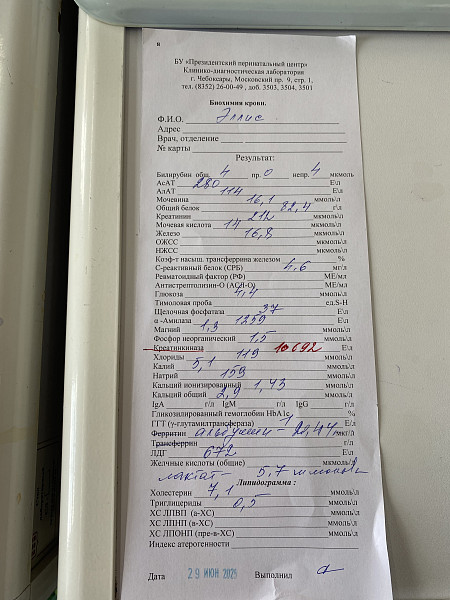 8
БУ «Президентский перинатальный центр»
Клинико-диагностическая лаборатория
г. Чебоксары, Московский пр. 9, стр. 1,
тел. (8352) 26-00-49 , доб. 3503, 3504, 3501
Биохимия крови.
Ф.И.О. Эллис
Адрес
Врач, отделение
№ карты
Результат:
Билирубин общ. 4 пр. 0 непр. 4 мкмоль
АсАТ 280 Е\л
АлАТ 114 Е\л
Мочевина 16,1 ммоль\л
Общий белок 82,4 г\л
Креатинин 212 мкмоль\л
Мочевая кислота 14 мкмоль\л
Железо 16,8 мкмоль\л
ОЖСС мкмоль\л
НЖСС мкмоль\л
Коэф-т насыщ. трансферрина железом %
С-реактивный белок (СРБ) 4,6 мг/л
Ревматоидный фактор (РФ) МЕ/мл
Антистрептолизин-О (АСЛ-О) МЕ/мл
Глюкоза 4,4 ммоль/л
Тимоловая проба ед.S-H
Щелочная фосфатаза 37 Е\л
α -Амилаза 1259 Е\л
Магний 1,3 ммоль\л
Фосфор неорганический 1,5 ммоль\л
Креатинкиназа 10692 Е\л
Хлориды 119 ммоль\л
Калий 5,1 ммоль\л
Натрий 159 ммоль\л
Кальций ионизированный 1,43 ммоль\л
Кальций общий 2,9 ммоль\л
IgA г/л IgM г/л IgG г/л
Гликозилированный гемоглобин HbA1c %
ГГТ (γ-глутамилтрансфераза) 1 Е/л
Ферритин альбумин - 21,44 мкг/л
Трансферрин г/л
ЛДГ 672 Е/л
Желчные кислоты (общие) мкмоль/л
лактат 5,7 ммоль/л
Липидограмма :
Холестерин 7,1 ммоль/л
Триглицериды 0,5 ммоль/л
ХС ЛПВП (α-ХС) ммоль/л
ХС ЛПНП (в-ХС) ммоль/л
ХС ЛПОНП (пре-в-ХС) ммоль/л
Индекс атерогенности
Дата 29 ИЮН 2023 Выполнил